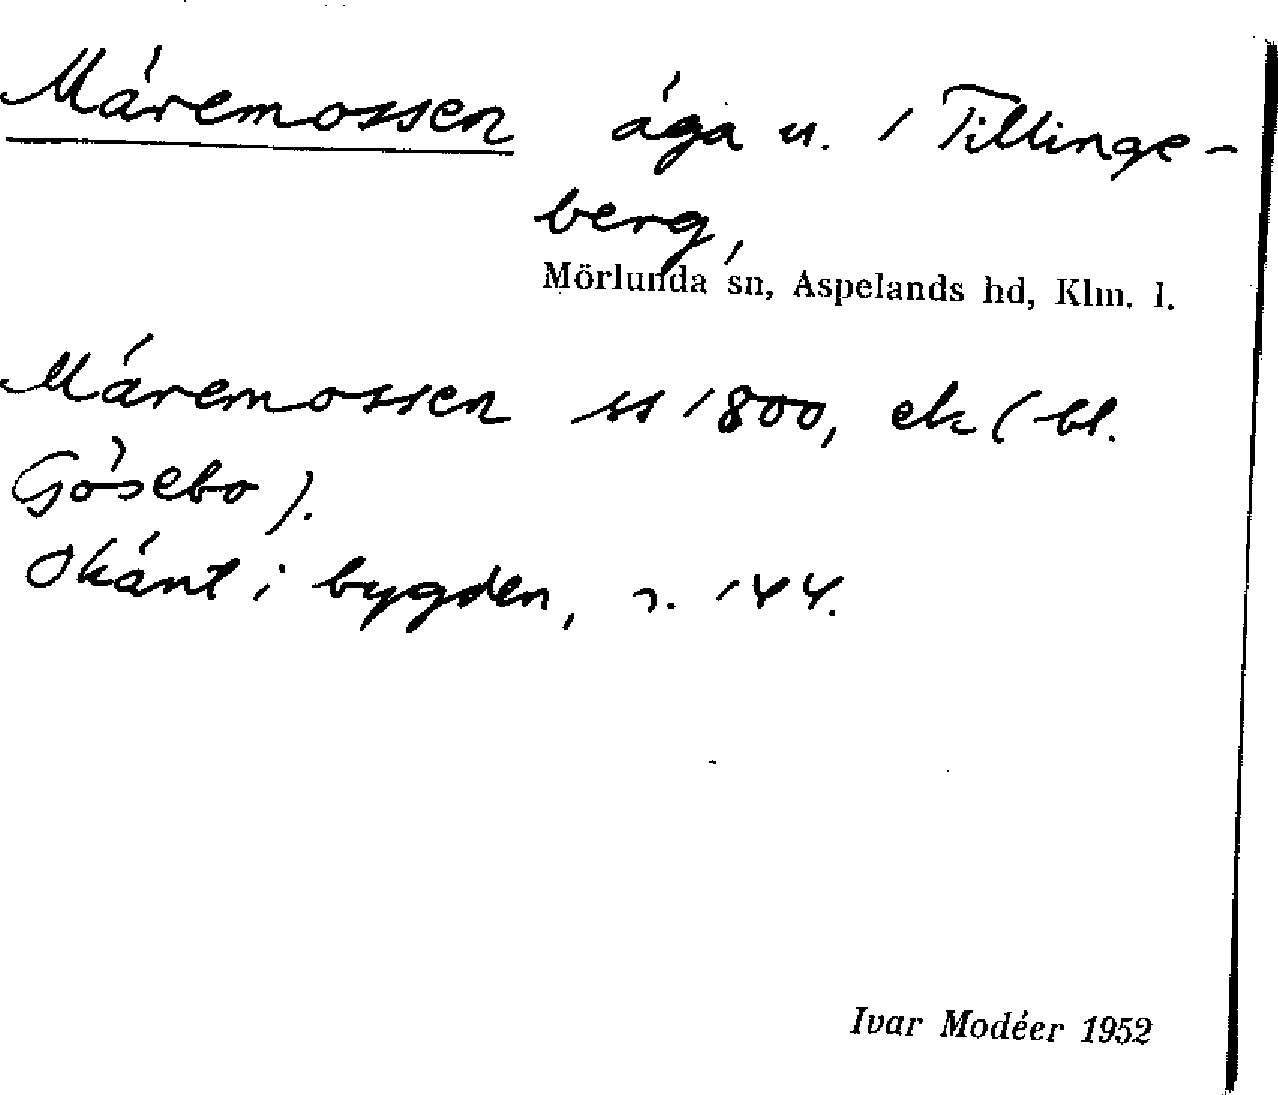 Máremossen ága u. 1 Tillinge-
berg,
Mörlunda sn, Aspelands hd, Klm. l.
Máremossen ss 1800, ek (bl.
Gósebo).
Okánt i bygden, n. 144.
Ivar Modéer 1952